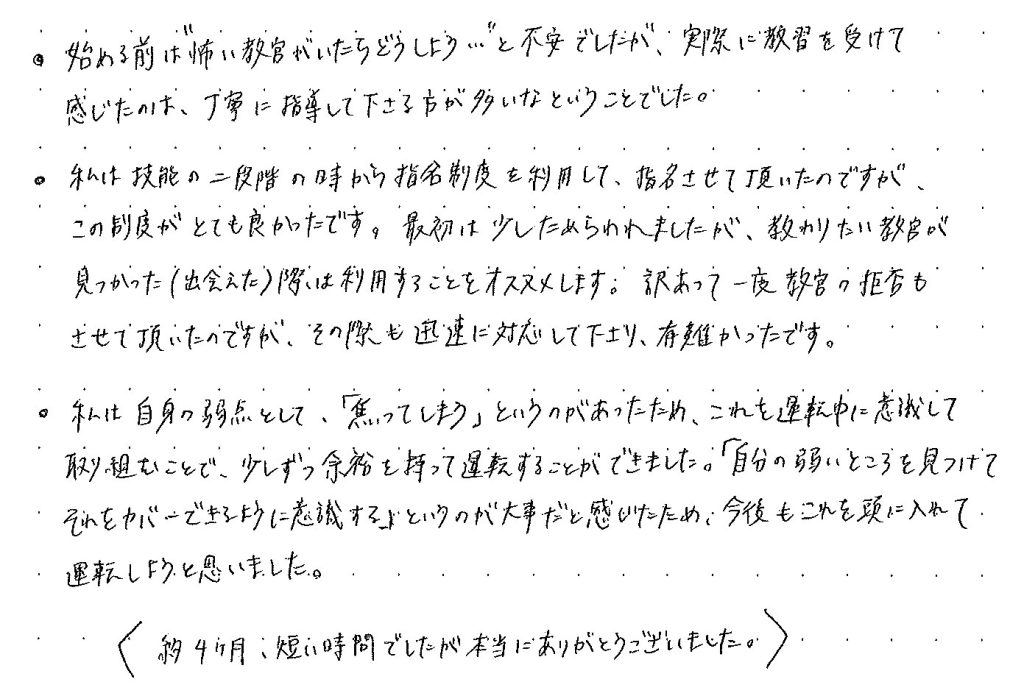 • 始める前は"怖い教官がいたらどうしよう…"と不安でしたが、実際に教習を受けて
感じたのは、丁寧に指導して下さる方が多いなということでした。
• 私は技能の二段階の時から指名制度を利用して、指名させて頂いたのですが、
この制度がとても良かったです。最初は少しためらわれましたが、教わりたい教官が
見つかった(出会えた)際は利用することをオススメします。訳あって一度教官の拒否も
させて頂いたのですが、その際も迅速に対応して下さり、有難かったです。
• 私は自身の弱点として、「焦ってしまう」というのがあったため、これを運転中に意識して
取り組むことで、少しずつ余裕を持って運転することができました。「自分の弱いところを見つけて
それをカバーできるように意識する」というのが大事だと感じたため、今後もこれを頭に入れて
運転しようと思いました。
〈 約4ヶ月、短い時間でしたが本当にありがとうございました。〉